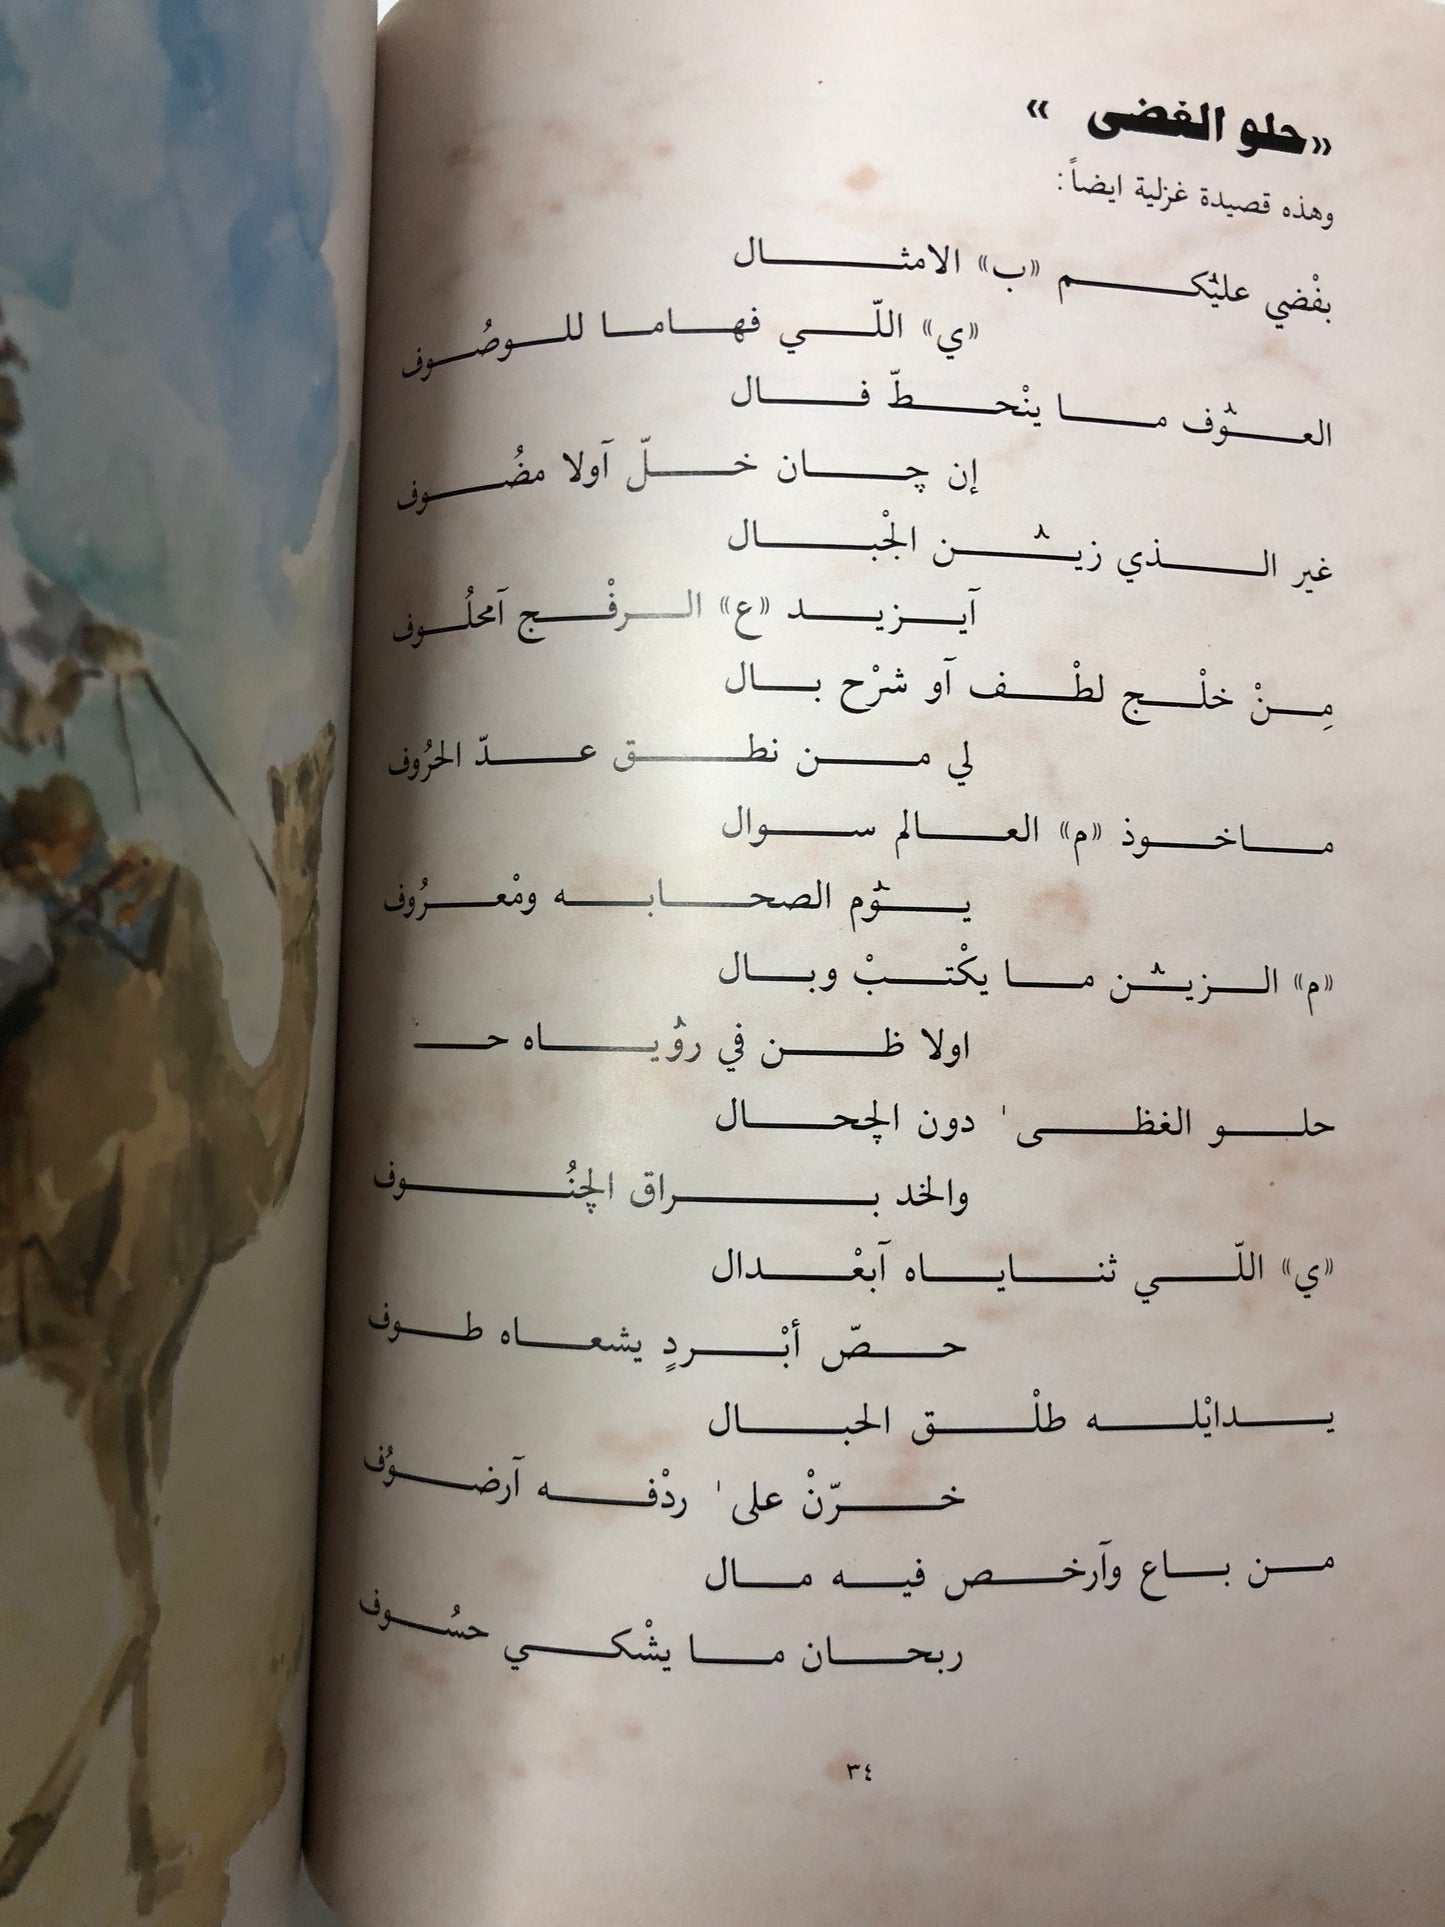 «حلو الغضى »
وهذه قصيدة غزلية ايضاً:
بفْضي عليْكم «ب» الامثال
«ي» اللّي فهاما للوصُوف
العوْف ما ينْحطّ فال
إن چان خلّ آولا مضُوف
غير الذي زيْن الجْبال
آيزيد «ع» الرفْج آمحلُوف
مِنْ خلْج لطْف آو شرْح بال
لي من نطق عدّ الحرُوف
ماخوذ «م» العالم سوال
يوْم الصحابه ومْعرُوف
«م» الزيْن ما يكْتبْ وبال
اولا ظن في روْياه حـ
حلو الغظى' دون الچحال
والخد براق الچنُوف
«ي» اللّي ثناياه آبعْدال
حصّ أبْردٍ يشعاه طوف
يدايْله طلْق الحبال
خرّنْ على' ردْفه آرضوُف
من باع وآرخص فيه مال
ربحان ما يشْكي حسُوف
٣٤